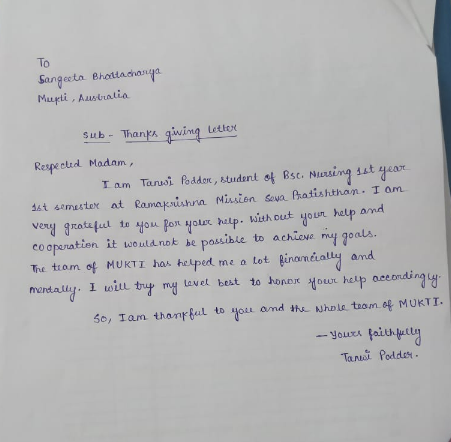 To
Sangeeta Bhattacharya
Mukti, Australia
Sub - Thanks giving letter
Respected Madam,
I am Tanwi Podder, student of Bsc. Nursing 1st year
1st semester at Ramakrishna Mission Seva Pratishthan. I am
very grateful to you for your help. Without your help and
cooperation it would not be possible to achieve my goals.
The team of MUKTI has helped me a lot financially and
mentally. I will try my level best to honor your help accordingly.
So, I am thankful to you and the whole team of MUKTI.
- Yours faithfully
Tanwi Podder.